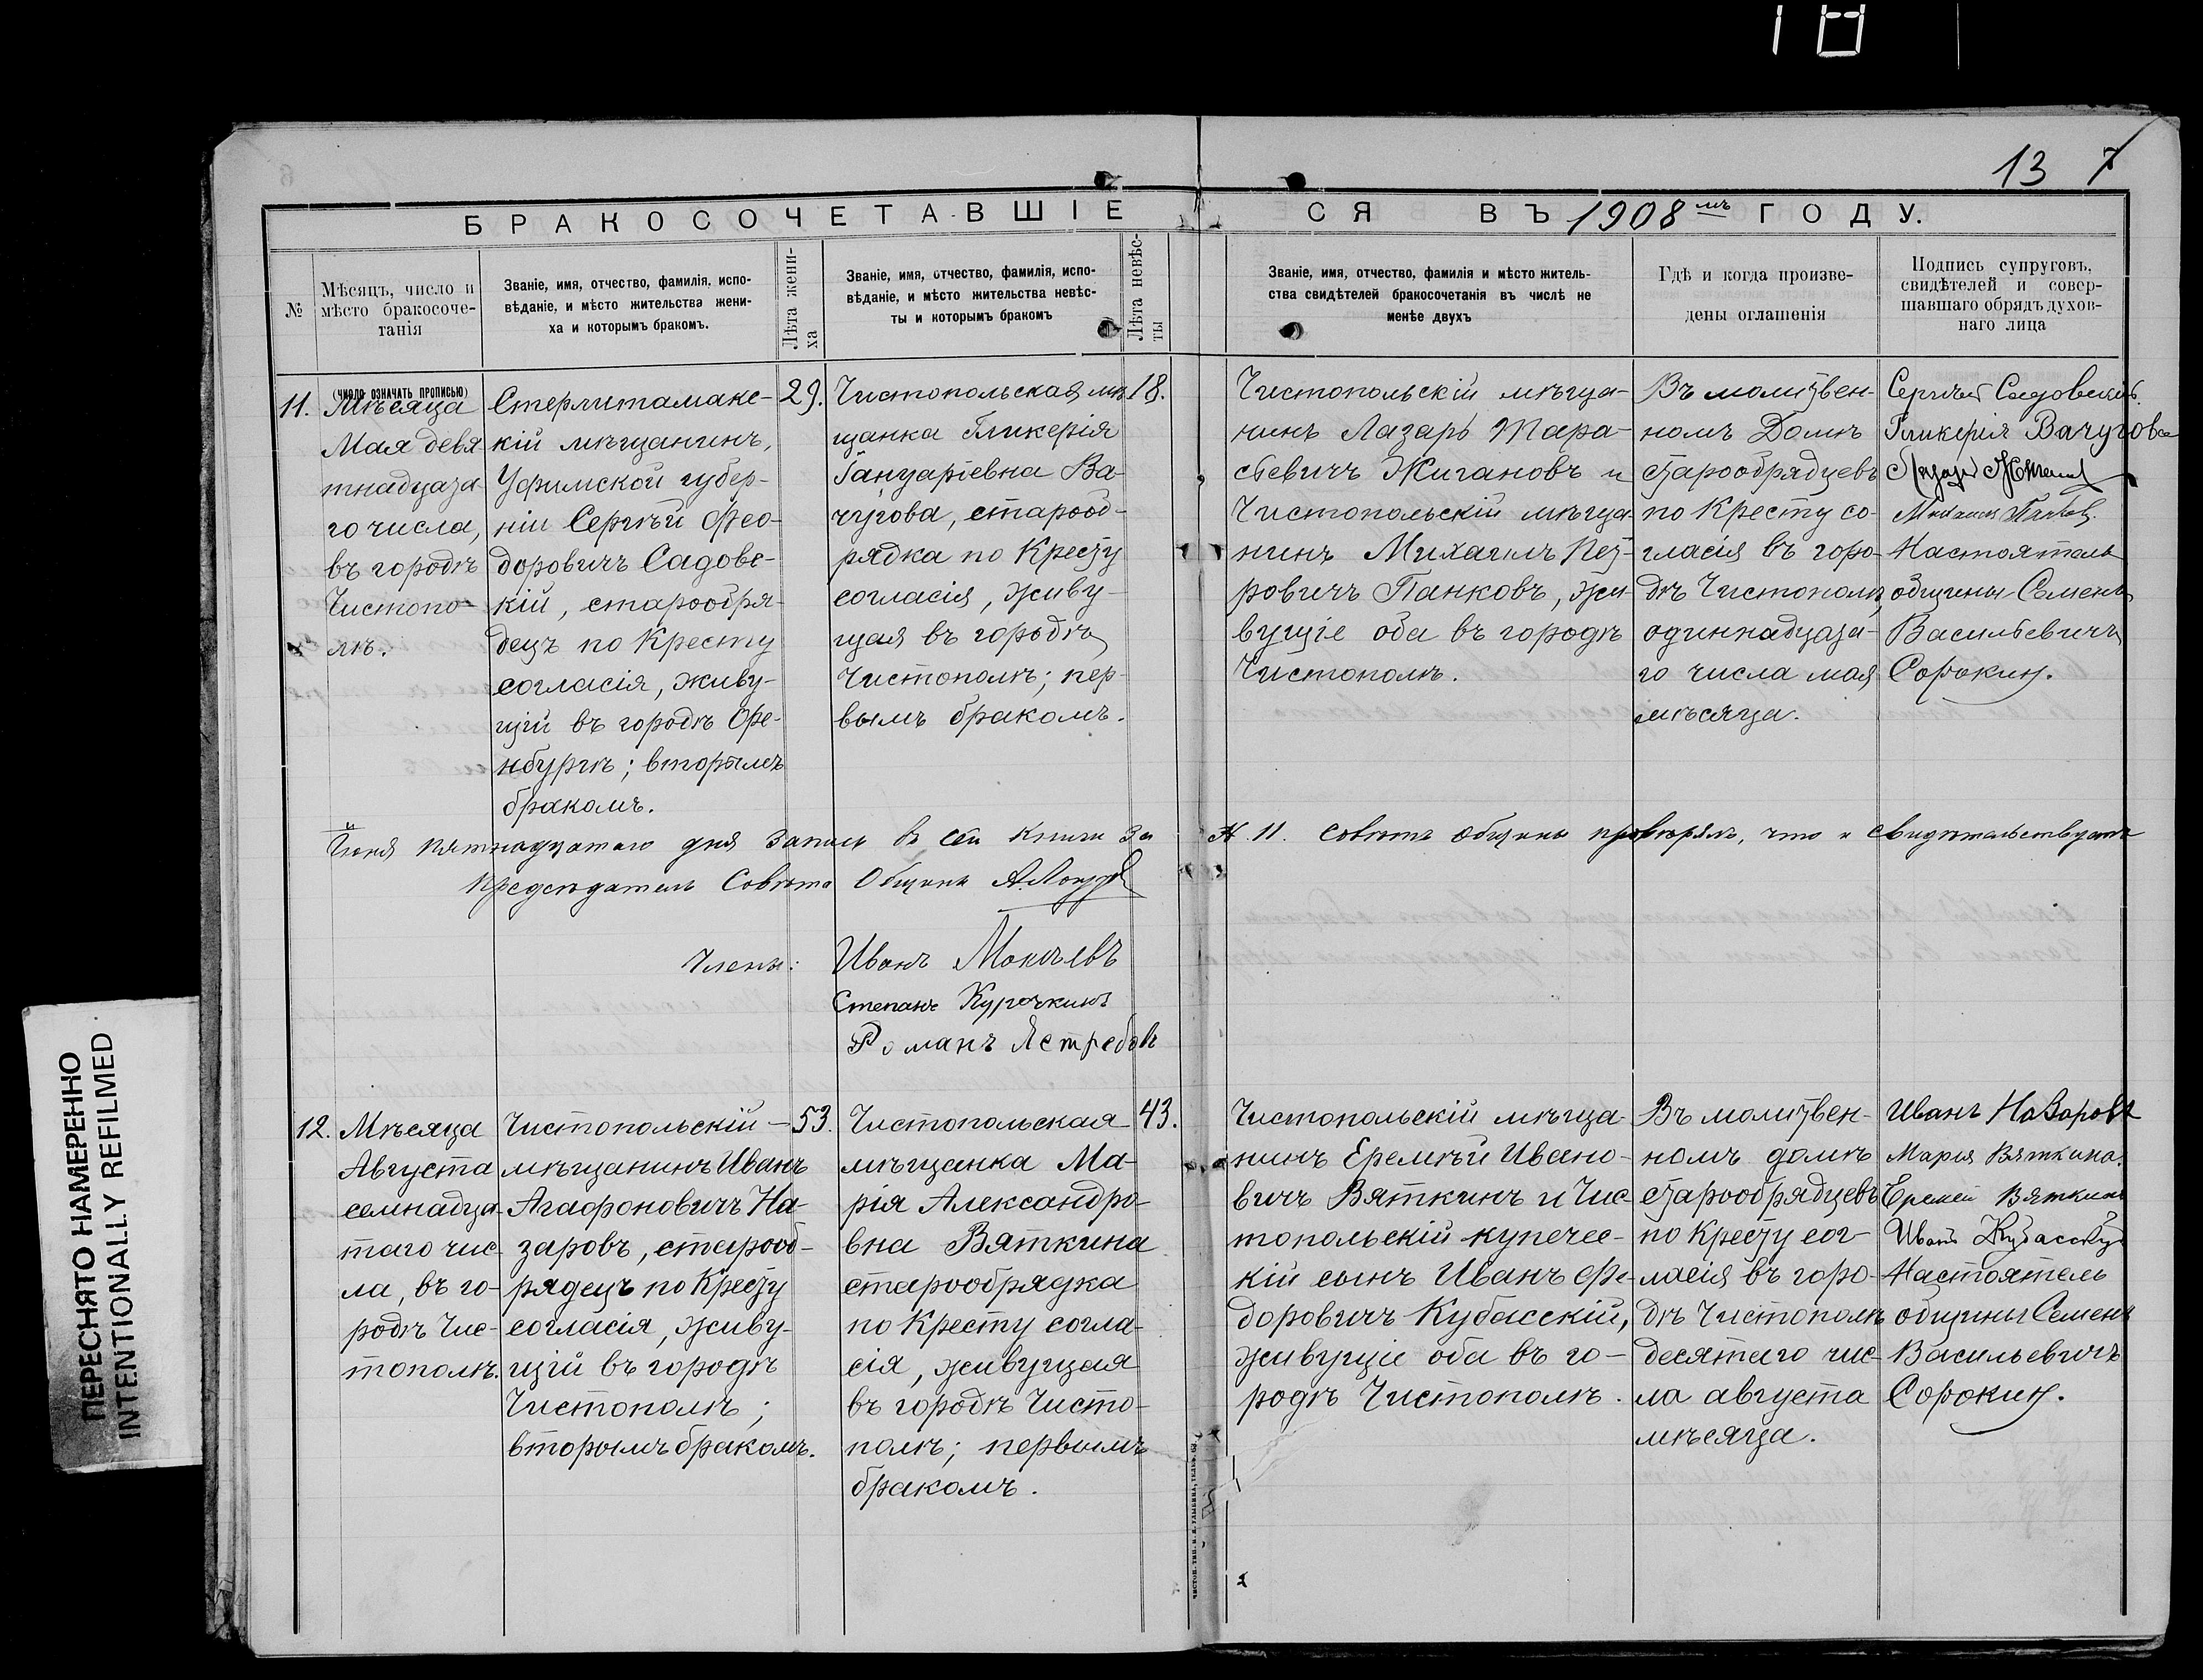 13 7
БРАКОСОЧЕТАВШІЕ
СЯ ВЪ 1908мъ ГОДУ.
№
Мѣсяцъ, число и
мѣсто бракосоче-
танія
(число означать прописью)
Званіе, имя, отчество, фамилія, испо-
вѣданіе, и мѣсто жительства жени-
ха и которымъ бракомъ.
Лѣта жени-
ха
Званіе, имя, отчество, фамилія, испо-
вѣданіе, и мѣсто жительства невѣс-
ты и которымъ бракомъ
Лѣта невѣс-
ты
Званіе, имя, отчество, фамилія и мѣсто житель-
ства свидѣтелей бракосочетанія въ числѣ не
менѣе двухъ
Гдѣ и когда произве-
дены оглашенія
Подпись супруговъ,
свидѣтелей и совер-
шавшаго обрядъ духов-
наго лица
11.
Мѣсяца
Мая девя
тнадцата
го числа,
въ городѣ
Чистопо-
лѣ.
Стерлитамакс-
кій мѣщанинъ,
Уфимской губер-
ніи Сергѣй Фео-
доровичъ Садовс-
кій, старообря-
децъ по Кресту
согласія, живу-
щій въ городѣ Оре-
нбургѣ; вторымъ
бракомъ.
29.
Чистопольская мѣ
щанка Гликерія
Іануаріевна Ва-
чугова, старооб-
рядка по Кресту
согласія, живу-
щая въ городѣ
Чистополѣ; пер-
вымъ бракомъ.
18.
Чистопольскій мѣща-
нинъ Лазарь Тара-
сьевичъ Жигановъ и
Чистопольскій мѣща-
нинъ Михаилъ Пет-
ровичъ Панковъ, жи-
вущіе оба въ городѣ
Чистополѣ.
Въ молитвен-
номъ Домѣ
старообрядцевъ
по Кресту со-
гласія въ горо-
дѣ Чистополѣ,
одиннадцата-
го числа мая
мѣсяца.
Сергѣй Садовскій.
Гликерія Вачугова
Лазарь
Михаилъ Панков.
Настоятель
общины Семенъ
Васильевичъ
Сорокин.
Іюня пятнадцатаго дня запись въ сей книги за
N. 11. совѣтъ общины провѣрялъ, что и свидѣтельствуетъ
Предсѣдатель Совѣта Общины
Члены:
Иванъ Мокѣевъ
Степанъ Курочкинъ
Романъ Ястребовъ
12.
Мѣсяца
Августа
семнадца
таго чис
ла, въ го-
родѣ Чис-
тополѣ.
Чистопольскій
мѣщанинъ Иванъ
Агафоновичъ На-
заровъ, старооб-
рядецъ по Кресту
согласія, живу-
щій въ городѣ
Чистополѣ;
вторымъ бракомъ.
53.
Чистопольская
мѣщанка Ма-
рія Александро-
вна Вяткина
старообрядка
по Кресту согла-
сія, живущая
въ городѣ Чисто-
полѣ; первымъ
бракомъ.
43.
Чистопольскій мѣща-
нинъ Еремѣй Ивано-
вичъ Вяткинъ и Чис-
топольскій купечес-
кій сынъ Иванъ Фе-
доровичъ Кубасскій,
живущіе оба въ го-
родѣ Чистополѣ.
Въ молитвен-
номъ домѣ
старообрядцевъ
по Кресту сог-
ласія въ горо-
дѣ Чистополѣ
десятаго чис-
ла августа
мѣсяца.
Иванъ Назаровъ
Мария Вяткина.
Еремей Вяткинъ
Иванъ Кубасскій
Настоятель
общины Семенъ
Васильевичъ
Сорокин.
ПЕРЕСНЯТО НАМЕРЕННО
INTENTIONALLY REFILMED